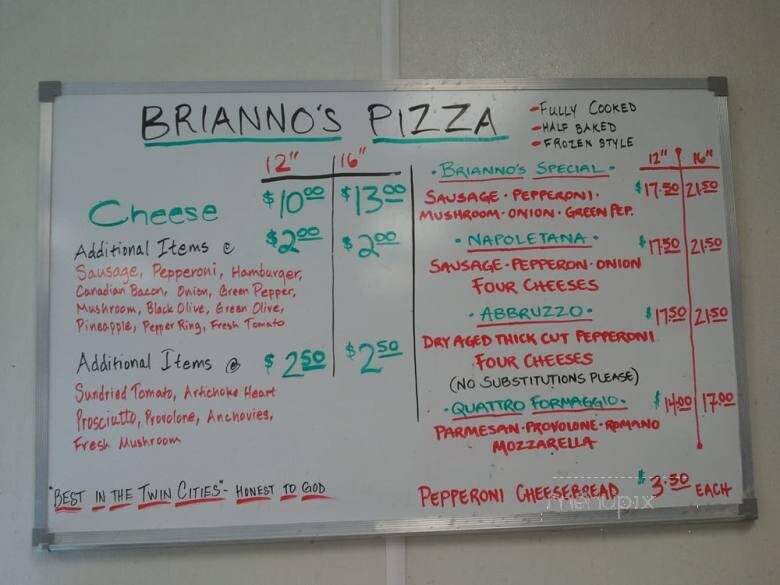 BRIANNO'S PIZZA
- FULLY COOKED
- HALF BAKED
- FROZEN STYLE
12" 16"
Cheese $10.00 $13.00
Additional Items @ $2.00 $2.00
Sausage, Pepperoni, Hamburger,
Canadian Bacon, Onion, Green Pepper,
Mushroom, Black Olive, Green Olive,
Pineapple, Pepper Ring, Fresh Tomato
Additional Items @ $2.50 $2.50
Sundried Tomato, Artichoke Heart
Prosciutto, Provolone, Anchovies,
Fresh Mushroom
"BEST IN THE TWIN CITIES" - HONEST TO GOD
12" 16"
· BRIANNO'S SPECIAL · $17.50 21.50
SAUSAGE · PEPPERONI ·
MUSHROOM · ONION · GREEN PEP.
· NAPOLETANA · $17.50 21.50
SAUSAGE · PEPPERON · ONION
FOUR CHEESES
· ABBRUZZO · $17.50 21.50
DRY AGED THICK CUT PEPPERONI
FOUR CHEESES
(NO SUBSTITUTIONS PLEASE)
· QUATTRO FORMAGGIO · $14.00 17.00
PARMESAN · PROVOLONE · ROMANO
MOZZARELLA
PEPPERONI CHEESEBREAD $3.50 EACH
menupix